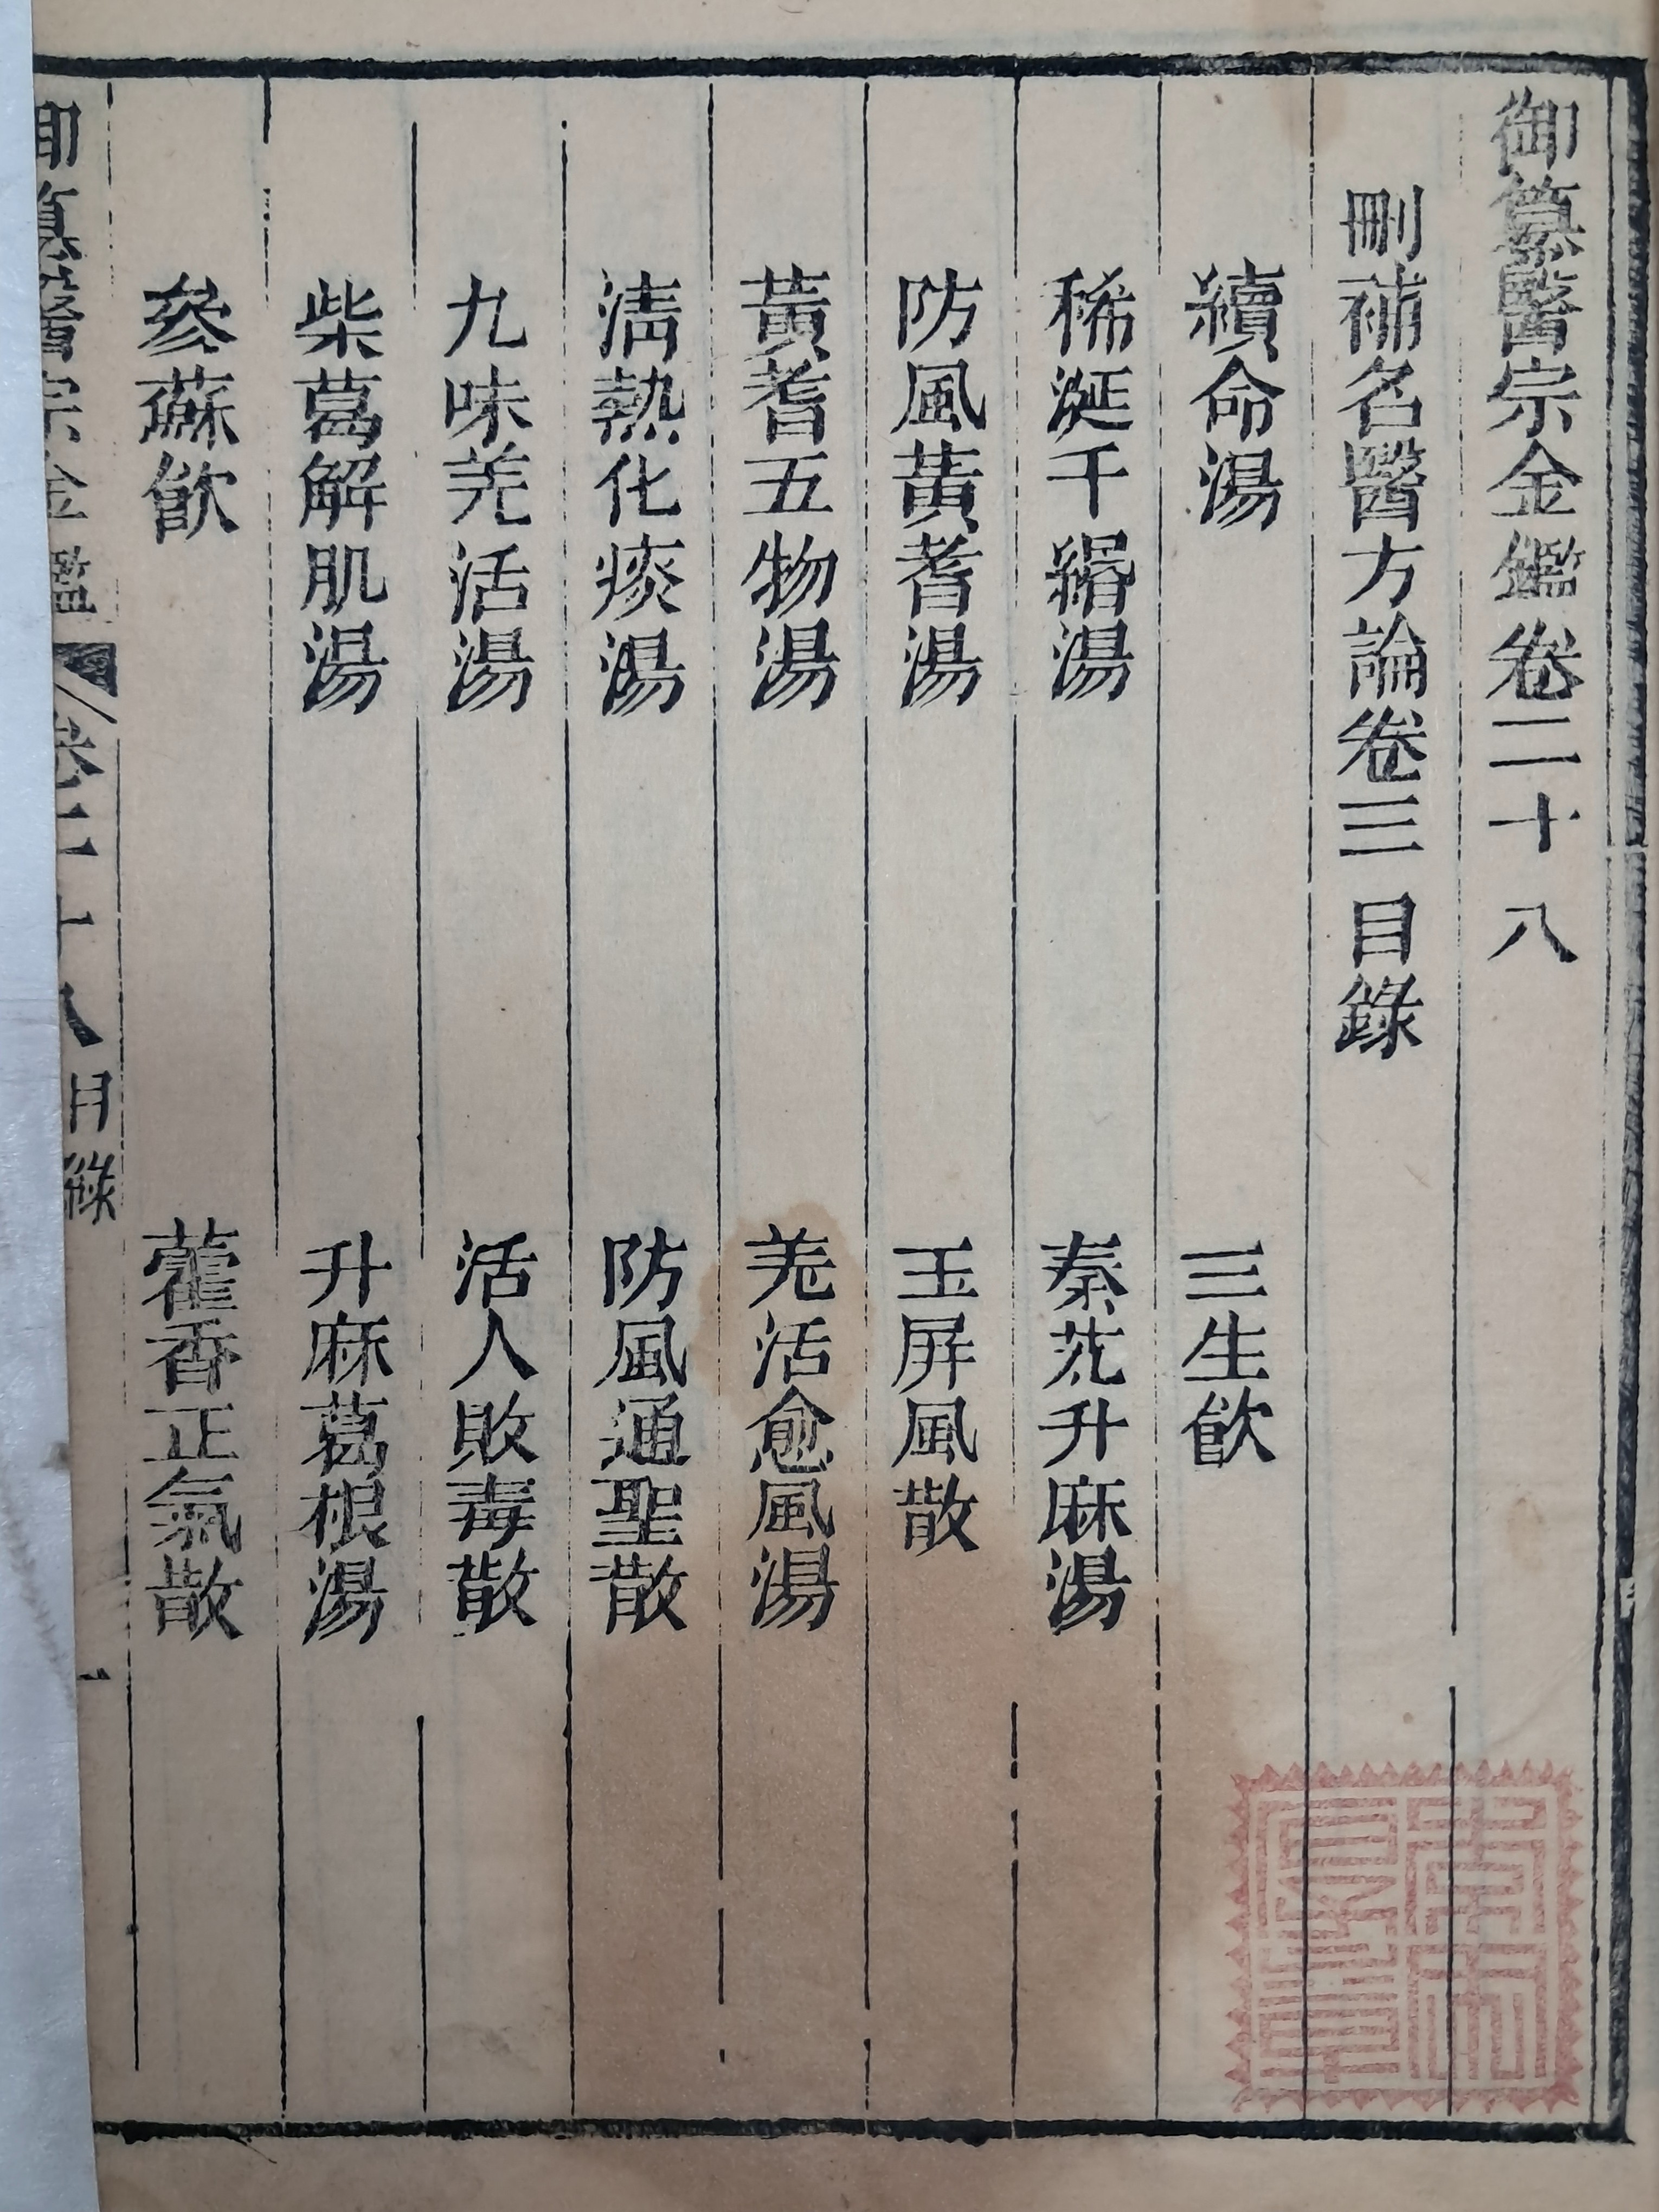 御纂醫宗金鑑卷二十八
刪補名醫方論卷三目錄
續命湯
三生飲
稀涎千緡湯
秦艽升麻湯
防風黃耆湯
玉屏風散
黃耆五物湯
羌活愈風湯
清熱化痰湯
防風通聖散
九味羌活湯
活人敗毒散
柴葛解肌湯
升麻葛根湯
參蘇飲
藿香正氣散
御纂醫宗金鑑 卷二十八目錄 一